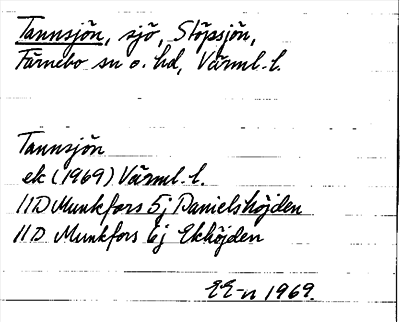 Tannsjön, sjö, Stöpsjön,
Färnebo sn o. hd, Värml. l.
Tannsjön
ek (1969) Värml. l.
11D Munkfors 5j Danielshöjden
11D Munkfors 6j Ekhöjden
EE-n 1969.